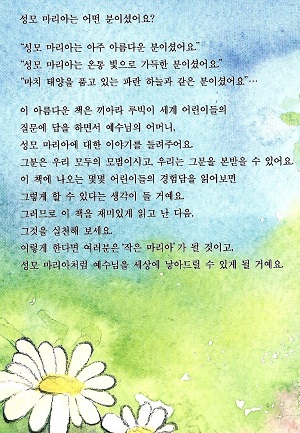 성모 마리아는 어떤 분이셨어요?
"성모 마리아는 아주 아름다운 분이셨어요."
"성모 마리아는 온통 빛으로 가득한 분이셨어요."
"마치 태양을 품고 있는 파란 하늘과 같은 분이셨어요"…
이 아름다운 책은 끼아라 루빅이 세계 어린이들의
질문에 답을 하면서 예수님의 어머니,
성모 마리아에 대한 이야기를 들려주어요.
그분은 우리 모두의 모범이시고, 우리는 그분을 본받을 수 있어요.
이 책에 나오는 몇몇 어린이들의 경험담을 읽어보면
그렇게 할 수 있다는 생각이 들 거예요.
그러므로 이 책을 재미있게 읽고 난 다음,
그것을 실천해 보세요.
이렇게 한다면 여러분은 '작은 마리아'가 될 것이고,
성모 마리아처럼 예수님을 세상에 낳아드릴 수 있게 될 거예요.